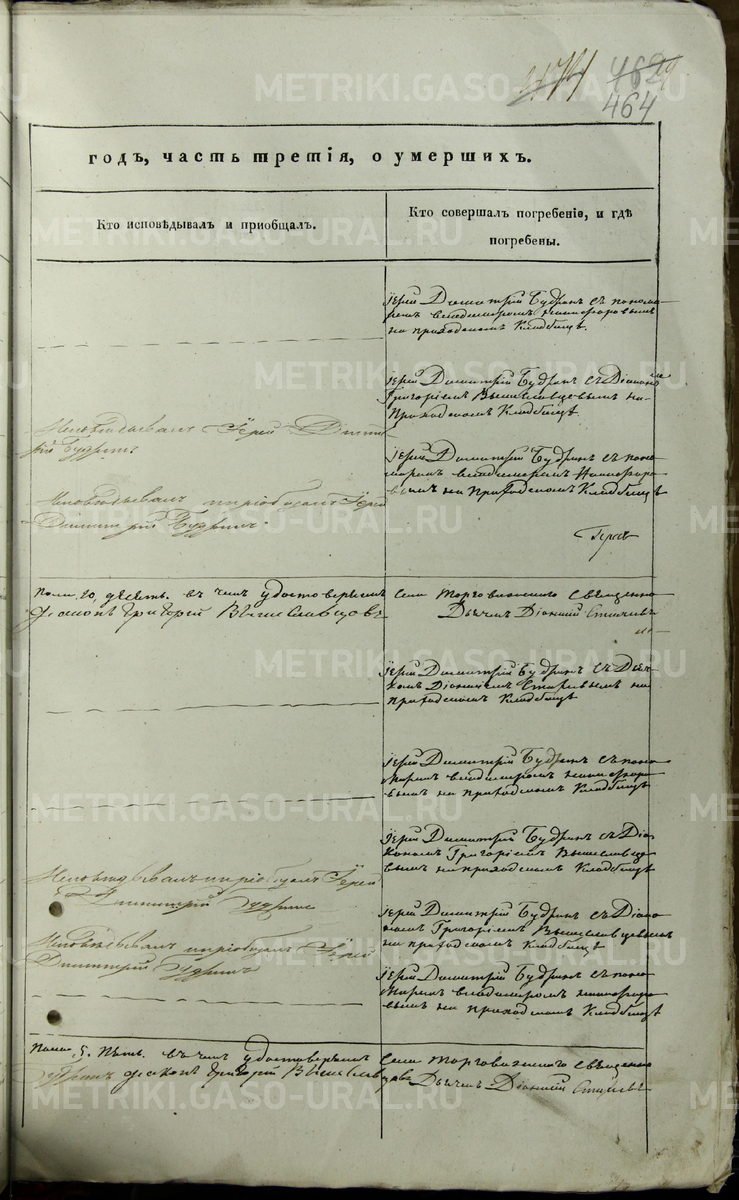 462
464
годъ, часть третія, о умершихъ.
Кто исповѣдывалъ и приобщалъ.
Кто совершалъ погребеніе, и гдѣ
погребены.
Іерей Димитрій Будринъ съ понома-
ремъ Владимиромъ Никифоровымъ
на приходскомъ Кладбищѣ.
Іерей Димитрій Будринъ съ Діакономъ
Григоріемъ Вышеславцевымъ на
Приходскомъ Кладбищѣ
Исповѣдывалъ Іерей Димит-
рій Будринъ
Іерей Димитрій Будринъ съ поно-
маремъ Владимиромъ Никифоро-
вымъ на Приходскомъ Кладбищѣ
Исповѣдывалъ и пріобщалъ Іерей
Димитрій Будринъ
10, десять. въ чемъ удостовѣряемъ
Діаконъ Григорій Вышеславцовъ
Села Торговижскаго Священно
Дьячекъ Діонисій
Іерей Димитрій Будринъ съ Дьяч-
комъ Діонисіемъ на
приходскомъ Кладбищѣ
Іерей Димитрій Будринъ съ поно-
маремъ Владимиромъ Никифоро-
вымъ на приходскомъ Кладбищѣ
Іерей Димитрій Будринъ съ Діа-
кономъ Григоріемъ Вышеславце-
вымъ на приходскомъ Кладбищѣ
Исповѣдывалъ и пріобщалъ Іерей
Димитрій Будринъ
Іерей Димитрій Будринъ съ Діако-
номъ Григоріемъ Вышеславцевымъ
на приходскомъ Кладбищѣ
Исповѣдывалъ и пріобщалъ Іерей
Димитрій Будринъ
Іерей Димитрій Будринъ съ поно-
маремъ Владимиромъ Никифоро-
вымъ на приходскомъ Кладбищѣ
5. Пять. въ чемъ удостовѣряемъ
Будринъ Діаконъ Григорій Вышеслав-
Села Торговижскаго Священно
Дьячекъ Діонисій
METRIKI.GASO-URAL.RU